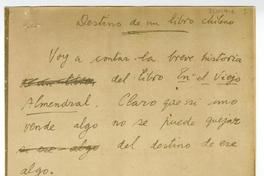 Destino de un libro chileno
Voy a contar la breve historia
del libro En el Viejo
Almendral. Claro que si uno
vende algo no se puede quejar
del destino de ese
algo.